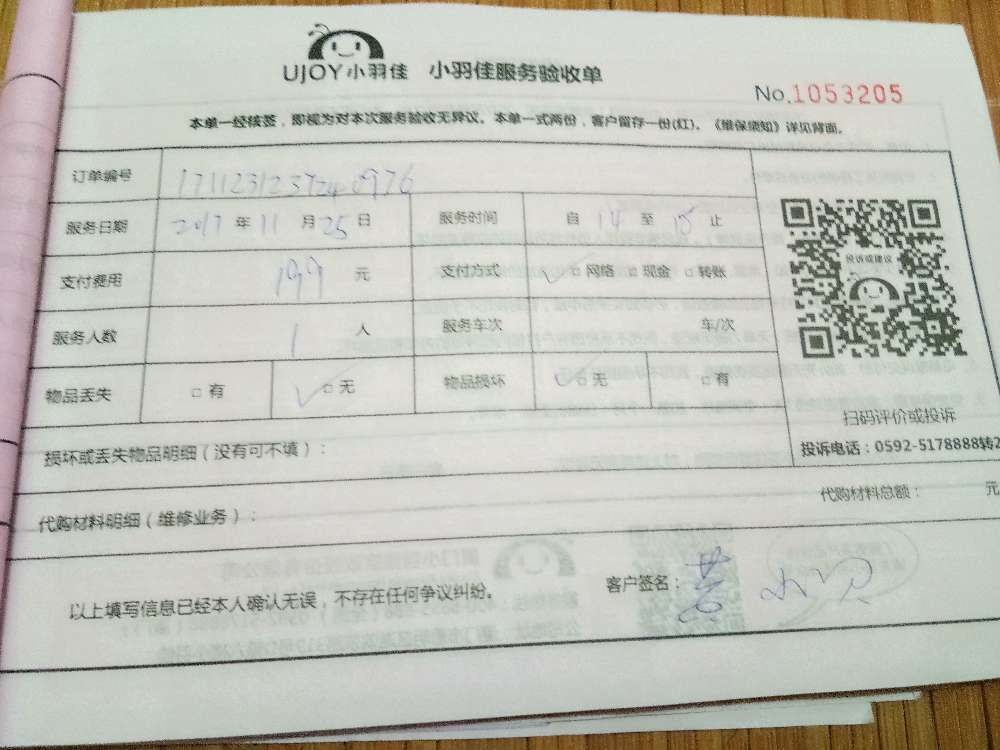 UJOY小羽佳 小羽佳服务验收单
No.1053205
本单一经核签，即视为对本次服务验收无异议。本单一式两份，客户留存一份(红)。《维保须知》详见背面。
订单编号
服务日期 2017 年 11 月 25 日 服务时间 自 14 至 18 止
支付费用 199 元 支付方式 □ 网络 □ 现金 □ 转账
投诉或建议
服务人数 1 人 服务车次 车/次
物品丢失 □ 有 □ 无 物品损坏 □ 无 □ 有
扫码评价或投诉
损坏或丢失物品明细（没有可不填）：
投诉电话：0592-5178888转2
代购材料明细（维修业务）： 代购材料总额： 元
以上填写信息已经本人确认无误，不存在任何争议纠纷。 客户签名：